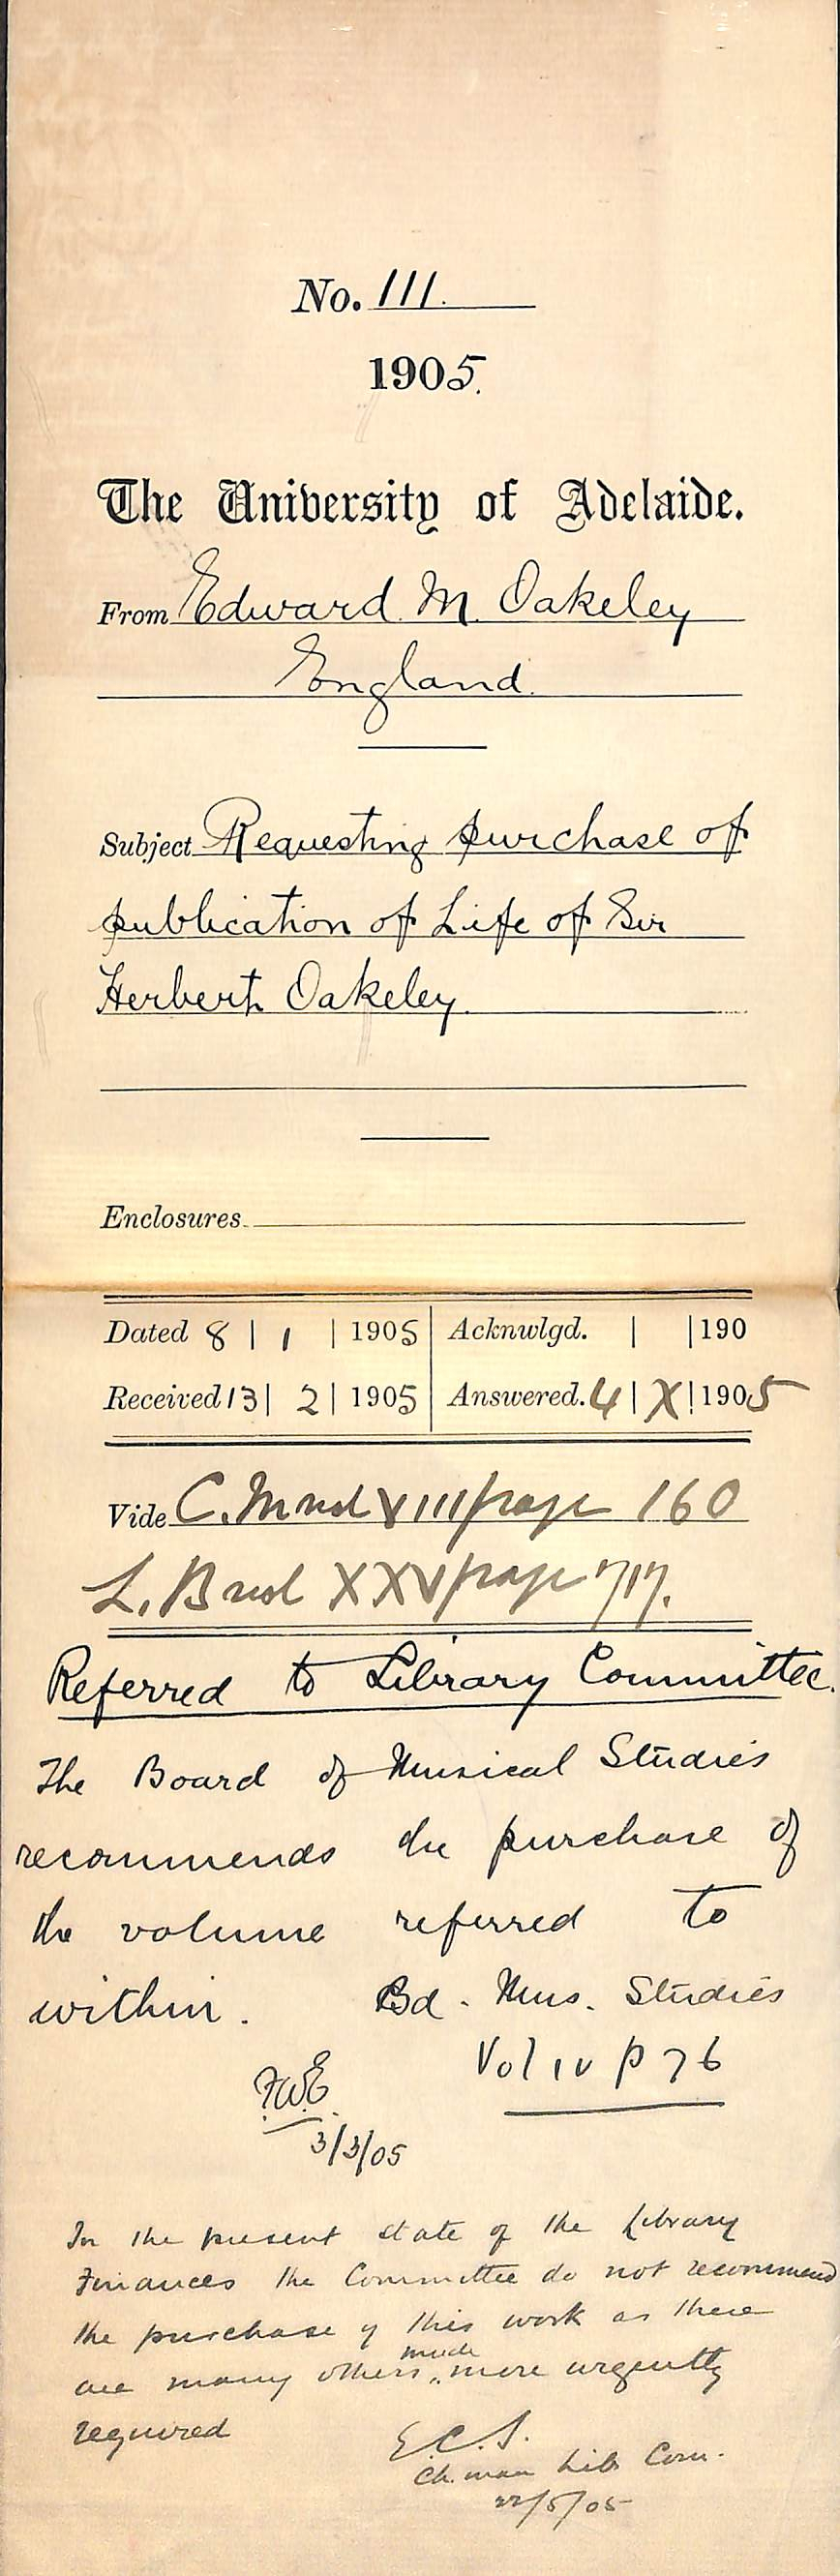 No. 111.
1905.
The University of Adelaide.
From Edward M. Oakeley
England.
Subject Requesting purchase of
publication of Life of Sir
Herbert Oakeley.
Enclosures.
Dated 8 | 1 | 1905 | Acknwlgd. | | 190
Received 13 | 2 | 1905 | Answered. 4 | X | 1905
Vide C. M vol XVIII page 160
L. B vol XXV page 717.
Referred to Library Committee.
The Board of Musical Studies
recommends the purchase of
the volume referred to
within. Bd. Mus. Studies
Vol IV p 76
F.W.E.
3/3/05
In the present state of the Library
Finances the Committee do not recommend
the purchase of this work as there
are many others, much more urgently
required
E.C.S.
Ch.man Lib Com.
22/5/05